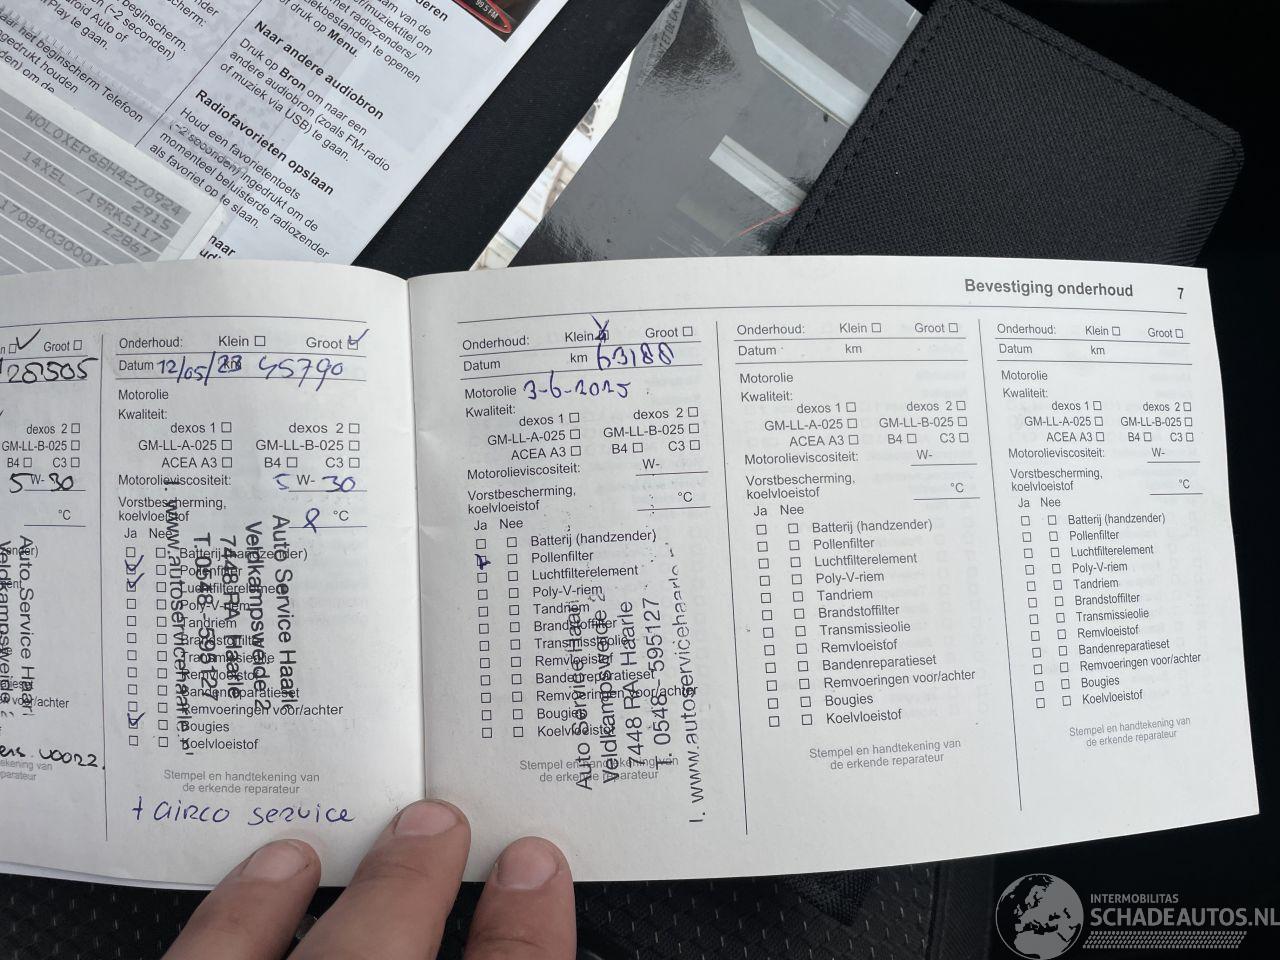 Naar andere audiobron
Druk op Bron om naar een
andere audiobron (zoals FM-radio
of muziek via USB) te gaan.
Radiofavorieten opslaan
Houd een favorietentoets
(~2 seconden) ingedrukt om de
momenteel beluisterde radiozender
als favoriet op te slaan.
of druk op Menu.
W0L0XEP68H4270924
14XEL /19RK5117
2915
Z2B67
Bevestiging onderhoud 7
Groot
28505
dexos 2
GM-LL-B-025
B4 C3
5 W- 30
°C
Onderhoud: Klein Groot
Datum 12/05/23 km 45790
Motorolie
Kwaliteit:
dexos 1 dexos 2
GM-LL-A-025 GM-LL-B-025
ACEA A3 B4 C3
Motorolieviscositeit: 5 W- 30
Vorstbescherming,
koelvloeistof 8 °C
Ja Nee
Batterij (handzender)
Pollenfilter
Luchtfilterelement
Poly-V-riem
Tandriem
Brandstoffilter
Transmissieolie
Remvloeistof
Bandenreparatieset
Remvoeringen voor/achter
Bougies
Koelvloeistof
Auto Service Haarle
Veldkampsweide 2
7448 RA Haarle
T. 0548 - 595127
I. www.autoservicehaarle.nl
Stempel en handtekening van
de erkende reparateur
+ airco service
Onderhoud: Klein Groot
Datum km 63188
Motorolie 3-6-2025
Kwaliteit:
dexos 1 dexos 2
GM-LL-A-025 GM-LL-B-025
ACEA A3 B4 C3
Motorolieviscositeit: W-
Vorstbescherming,
koelvloeistof °C
Ja Nee
Batterij (handzender)
Pollenfilter
Luchtfilterelement
Poly-V-riem
Tandriem
Brandstoffilter
Transmissieolie
Remvloeistof
Bandenreparatieset
Remvoeringen voor/achter
Bougies
Koelvloeistof
Auto Service Haarle
Veldkampsweide 2
7448 RA Haarle
T. 0548 - 595127
I. www.autoservicehaarle.
Stempel en handtekening van
de erkende reparateur
Onderhoud: Klein Groot
Datum km
Motorolie
Kwaliteit:
dexos 1 dexos 2
GM-LL-A-025 GM-LL-B-025
ACEA A3 B4 C3
Motorolieviscositeit: W-
Vorstbescherming,
koelvloeistof °C
Ja Nee
Batterij (handzender)
Pollenfilter
Luchtfilterelement
Poly-V-riem
Tandriem
Brandstoffilter
Transmissieolie
Remvloeistof
Bandenreparatieset
Remvoeringen voor/achter
Bougies
Koelvloeistof
Stempel en handtekening van
de erkende reparateur
Onderhoud: Klein Groot
Datum km
Motorolie
Kwaliteit:
dexos 1 dexos 2
GM-LL-A-025 GM-LL-B-025
ACEA A3 B4 C3
Motorolieviscositeit: W-
Vorstbescherming,
koelvloeistof °C
Ja Nee
Batterij (handzender)
Pollenfilter
Luchtfilterelement
Poly-V-riem
Tandriem
Brandstoffilter
Transmissieolie
Remvloeistof
Bandenreparatieset
Remvoeringen voor/achter
Bougies
Koelvloeistof
Stempel en handtekening van
de erkende reparateur
INTERMOBILITAS
SCHADEAUTOS.NL